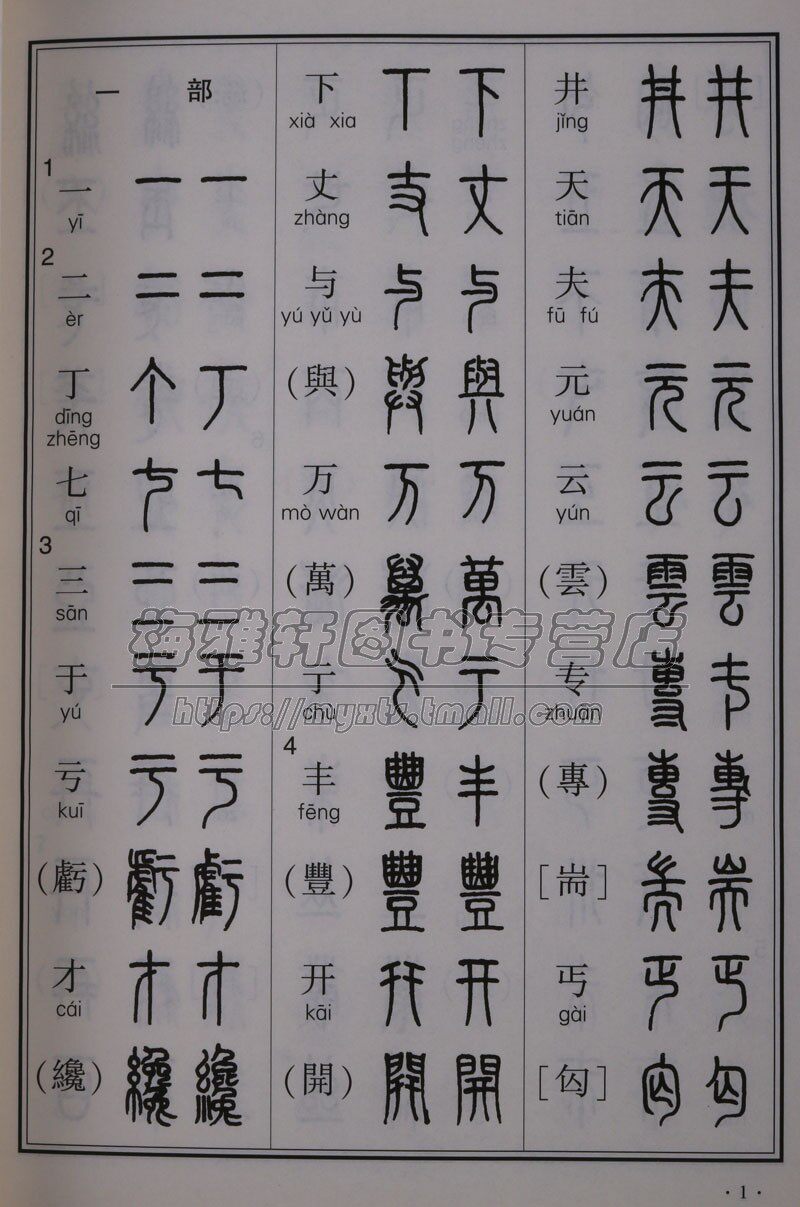 一 部
1
一
yī
2
二
èr
丁
dīng
zhēng
七
qī
3
三
sān
于
yú
亏
kuī
(虧)
才
cái
(纔)
下
xià xia
丈
zhàng
与
yú yǔ yù
(與)
万
mò wàn
(萬)
亍
chù
4
丰
fēng
(豐)
开
kāi
(開)
井
jǐng
天
tiān
夫
fū fú
元
yuán
云
yún
(雲)
专
zhuān
(專)
[耑]
丐
gài
[匃]
梅雅轩图书专营店
https://myxts.tmall.com
· 1 ·